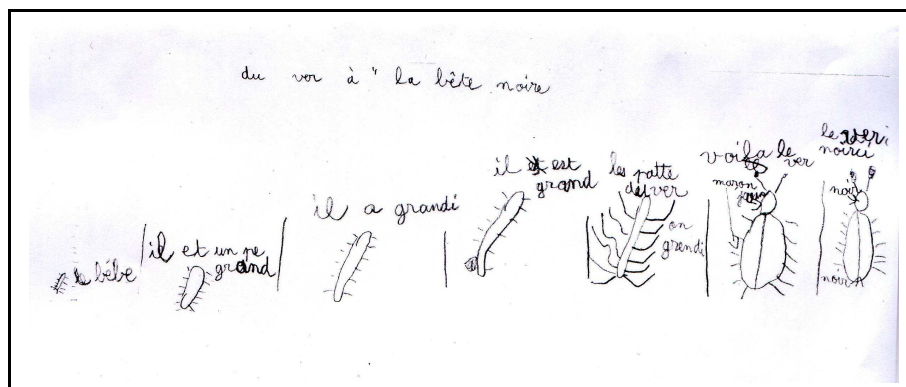 du ver à " la bête noire
le bébé
il et un pe
grand
il a grandi
il est
grand
les patte
du ver
on
grendi
voila le
ver
maron
le ver
noirci
noir
noir